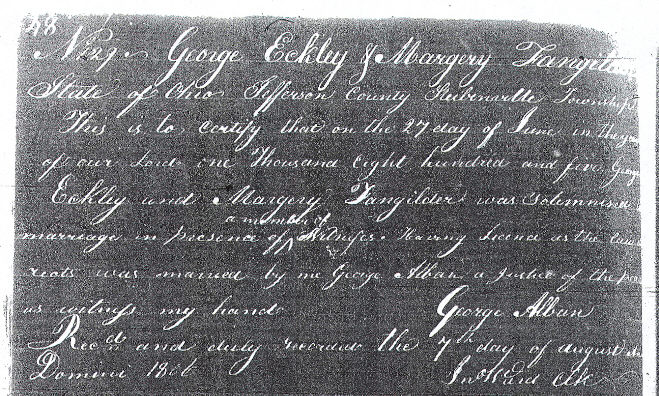 48
No 29 George Eckley & Margery Tangilder
State of Ohio Jefferson County Steubenville Township
This is to certify that on the 27 day of June in the year
of our Lord one Thousand Eight hundred and five George
Eckley and Margery Tangilder was Solemnised
a member of
marriage in presence of Witnefses. Having licence as the law
was married by me George Alban a Justice of the pea
as witnefs my hand George Alban
Recd and duly recorded the 7th day of august
Domini 1806 Jno Ward Clk